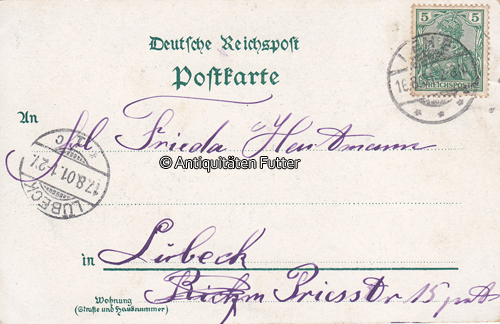 5 5
REICHSPOST
Deutsche Reichspost
Postkarte
An
Frl Frieda Hartmann
© Antiquitäten Futter
LÜBECK
17.8.01. 1-2 N.
in Lübeck
Priesstr 15 ptr
Wohnung
(Straße und Hausnummer)